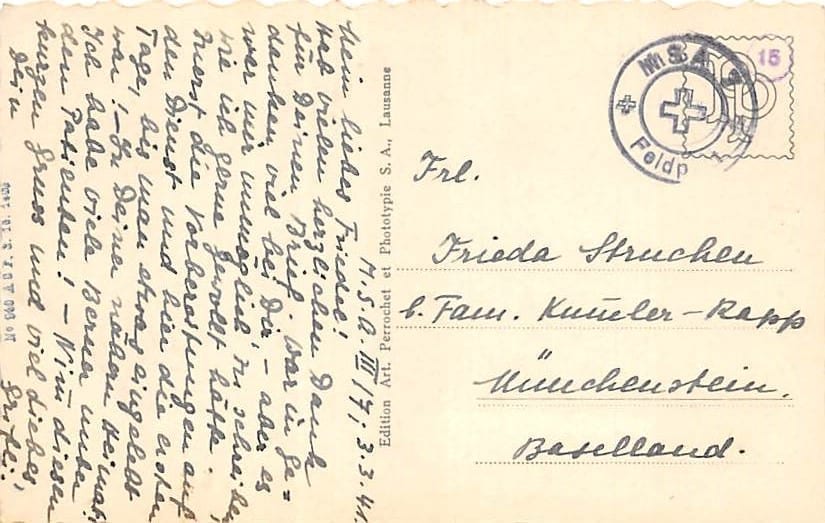 M.S.A. III/7; 3.3.41.
Mein liebes Friedeli!
Hab vielen herzlichen Dank
für Deinen Brief. War in Ge=
danken viel bei Dir – aber es
war mir unmöglich zu schreiben,
wie ich gerne gewollt hätte.
Zuerst die Vorbereitungen auf
den Dienst und hier die ersten
Tage, bis man etwas eingelebt
war! – In Deiner nähern Heimat!
Ich habe viele Berner unter
den Patienten! – Nim̄ diesen
kurzen Gruss und viel Liebes
Dein
Edition Art. Perrochet et Phototypie S. A., Lausanne
MSA
Feldp
15
Frl.
Frieda Struchen
b. Fam. Kum̄ler-Rapp
Münchenstein.
Baselland.